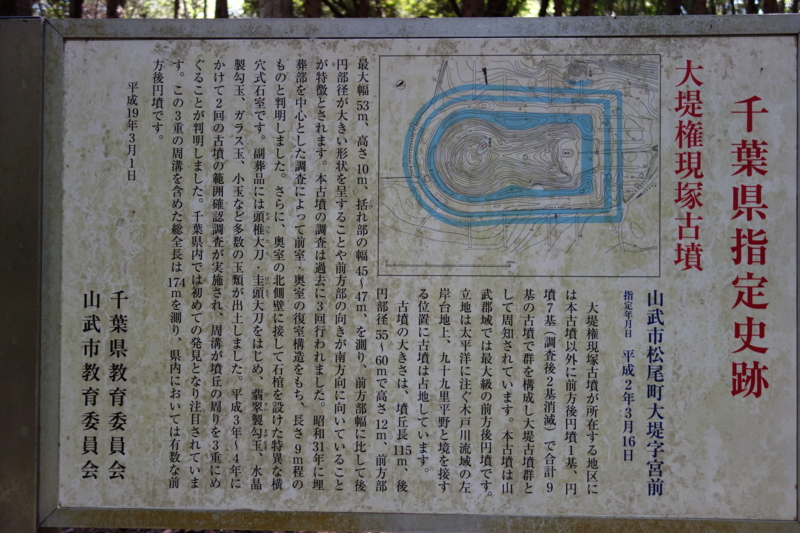 千葉県指定史跡
大堤権現塚古墳
山武市松尾町大堤字宮前
指定年月日　平成2年3月16日
　大堤権現塚古墳が所在する地区に
は本古墳以外に前方後円墳1基、円
墳7基（調査後2基消滅）で合計9
基の古墳で群を構成し大堤古墳群と
して周知されています。本古墳は山
武郡域では最大級の前方後円墳です。
立地は太平洋に注ぐ木戸川流域の左
岸台地上、九十九里平野と境を接す
る位置に古墳は占地しています。
　古墳の大きさは、墳丘長115m、後
円部径55～60mで高さ12m、前方部
最大幅53m、高さ10m、括れ部の幅45～47m、を測り、前方部幅に比して後
円部径が大きい形状を呈することや前方部の向きが南方向に向いていること
が特徴とされます。本古墳の調査は過去に3回行われました。昭和31年に埋
葬部を中心とした調査によって前室・奥室の複室構造をもち、長さ9m程の
ものと判明しました。さらに、奥室の北側壁に接して石棺を設けた特異な横
穴式石室です。副葬品には頭椎大刀・圭頭大刀をはじめ、翡翠製勾玉、水晶
製勾玉、ガラス玉、小玉など多数の玉類が出土しました。平成3年～4年に
かけて2回の古墳の範囲確認調査が実施され、周溝が墳丘の周りを3重にめ
ぐることが判明しました。千葉県内では初めての発見となり注目されていま
す。この3重の周溝を含めた総全長は174mを測り、県内においては有数な前
方後円墳です。
平成19年3月1日
千葉県教育委員会
山武市教育委員会